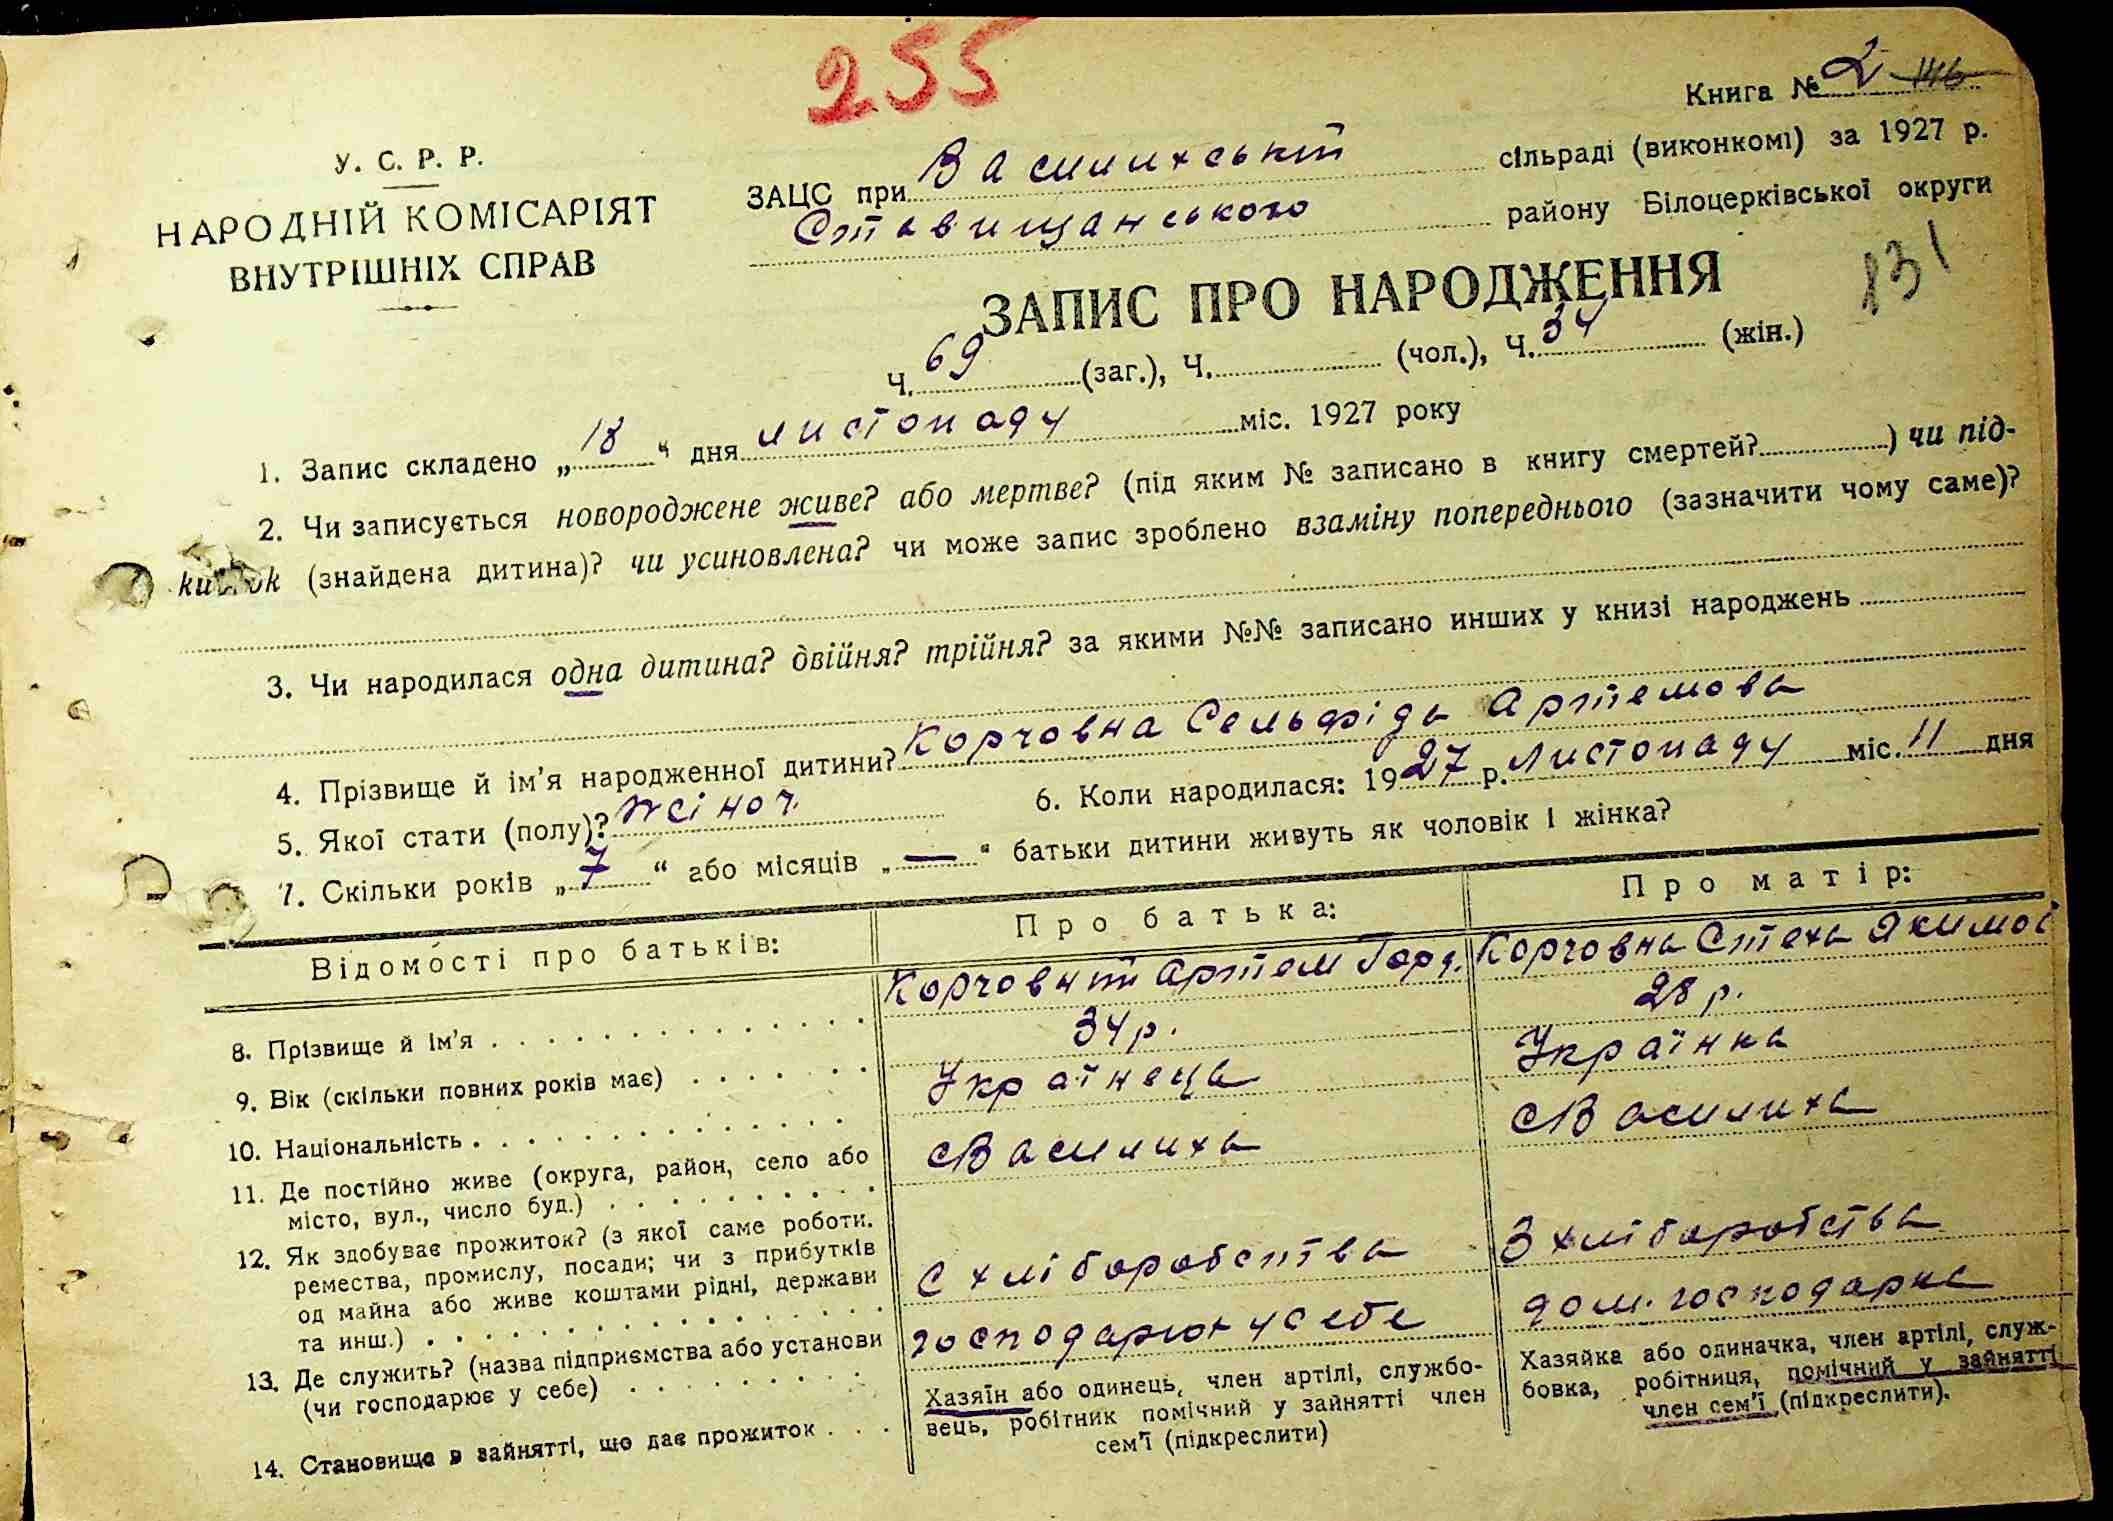 255
Книга № 2 146
У. С. Р. Р.
НАРОДНІЙ КОМІСАРІЯТ
ВНУТРІШНІХ СПРАВ
ЗАЦС при Василихській сільраді (виконкомі) за 1927 р.
Ставищанського району Білоцерківської округи
ЗАПИС ПРО НАРОДЖЕННЯ
131
Ч. 69 (заг.), Ч. (чол.), Ч. 34 (жін.)
1. Запис складено „18“ дня листопаду міс. 1927 року
2. Чи записується новороджене живе? або мертве? (під яким № записано в книгу смертей?) чи під-
кидьок (знайдена дитина)? чи усиновлена? чи може запис зроблено взаміну попереднього (зазначити чому саме)?
3. Чи народилася одна дитина? двійня? трійня? за якими №№ записано инших у книзі народжень
4. Прізвище й ім'я народженної дитини? Корчовна Сельфіда Артемова
5. Якої стати (полу)? жіноч. 6. Коли народилася: 1927 р. листопаду міс. 11 дня
7. Скільки років „7“ або місяців „—“ батьки дитини живуть як чоловік і жінка?
Відомості про батьків: Про батька: Про матір:
8. Прізвище й ім'я Корчовний Артем Горд. Корчовна Стеха Якимов
9. Вік (скільки повних років має) 34 р. 28 р.
10. Національність Українець Українка
11. Де постійно живе (округа, район, село або
місто, вул., число буд.) с Василиха с Василиха
12. Як здобуває прожиток? (з якої саме роботи.
ремества, промислу, посади; чи з прибутків
од майна або живе коштами рідні, держави
та инш.) с хліборобства З хліборобства
13. Де служить? (назва підприємства або установи
(чи господарює у себе) господарює у себе дом. господарка
14. Становище в зайнятті, що дає прожиток
Хазяїн або одинець, член артілі, службо-
вець, робітник помічний у зайнятті член
сем'ї (підкреслити)
Хазяйка або одиначка, член артілі, служ-
бовка, робітниця, помічний у зайнятті
член сем'ї (підкреслити).